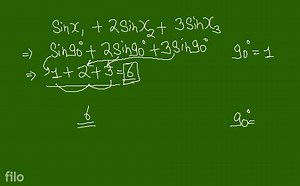 Sinx₁ + 2Sinx₂ + 3Sinx₃
⇒ Sin90° + 2Sin90° + 3Sin90° 90° = 1
⇒ 1 + 2 + 3 = 6
6 90° =
filo